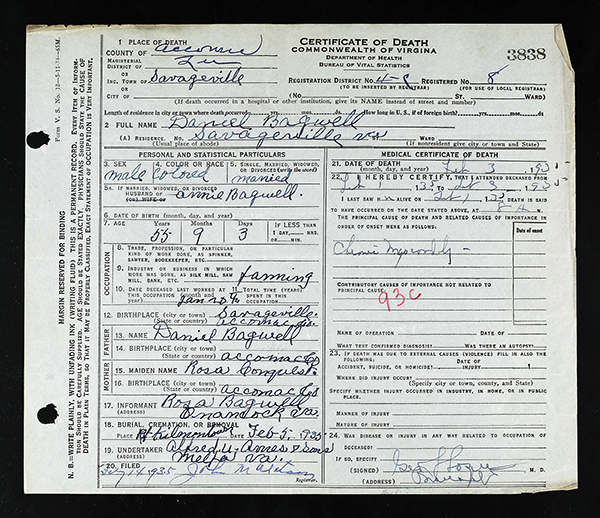 1 PLACE OF DEATH
COUNTY OF Accomac
MAGISTERIAL DISTRICT OF Lee
OR
INC. TOWN OF Savageville
OR
CITY OF (No. St. Ward)
CERTIFICATE OF DEATH
COMMONWEALTH OF VIRGINIA
DEPARTMENT OF HEALTH
BUREAU OF VITAL STATISTICS
3838
REGISTRATION DISTRICT No. REGISTERED No. 8
(TO BE INSERTED BY REGISTRAR) (FOR USE OF LOCAL REGISTRAR)
(If death occurred in a hospital or other institution, give its NAME instead of street and number)
Length of residence in city or town where death occurred yrs. mos. ds. How long in U.S., if of foreign birth? yrs. mos. ds.
2 FULL NAME Daniel Bagwell
(A) RESIDENCE. No. Savageville Va WARD
(Usual place of abode) (If nonresident give city or town and State)
PERSONAL AND STATISTICAL PARTICULARS
3. SEX 4. COLOR OR RACE 5. SINGLE, MARRIED, WIDOWED, OR DIVORCED (write the word)
male Colored married
5A. IF MARRIED, WIDOWED, OR DIVORCED
HUSBAND OF
(OR) WIFE OF Annie Bagwell.
6. DATE OF BIRTH (month, day, and year)
7. AGE 55 9 3 IF LESS THAN 1 DAY, HRS. OR MIN.
OCCUPATION
8. TRADE, PROFESSION, OR PARTICULAR KIND OF WORK DONE, AS SPINNER, SAWYER, BOOKKEEPER, ETC.
9. INDUSTRY OR BUSINESS IN WHICH WORK WAS DONE, AS SILK MILL, SAW MILL, BANK, ETC. farming
10. DATE DECEASED LAST WORKED AT THIS OCCUPATION (month and year) 11. TOTAL TIME (YEARS) SPENT IN THIS OCCUPATION
12. BIRTHPLACE (city or town) Savageville.
(State or country) accomac Co.
FATHER
13. NAME Daniel Bagwell
14. BIRTHPLACE (city or town)
(State or country) accomac Co
MOTHER
15. MAIDEN NAME Rosa Conquest.
16. BIRTHPLACE (city or town)
(State or country) accomac Co
17. INFORMANT Rosa Bagwell
(ADDRESS) Onancock Va.
18. BURIAL, CREMATION, OR REMOVAL
PLACE DATE Feb 5, 1935
19. UNDERTAKER Alfred U. Ames & sons
(ADDRESS) Melfa Va.
20. FILED 1935 John
Registrar.
MEDICAL CERTIFICATE OF DEATH
21. DATE OF DEATH (month, day, and year) Feb 3, 1935
22. I HEREBY CERTIFY, THAT I ATTENDED DECEASED FROM
I LAST SAW H ALIVE ON DEATH IS SAID TO HAVE OCCURRED ON THE DATE STATED ABOVE, AT M.
THE PRINCIPAL CAUSE OF DEATH AND RELATED CAUSES OF IMPORTANCE IN ORDER OF ONSET WERE AS FOLLOWS: Date of onset
CONTRIBUTORY CAUSES OF IMPORTANCE NOT RELATED TO PRINCIPAL CAUSE:
93c
NAME OF OPERATION DATE OF
WHAT TEST CONFIRMED DIAGNOSIS? WAS THERE AN AUTOPSY?
23. IF DEATH WAS DUE TO EXTERNAL CAUSES (VIOLENCE) FILL IN ALSO THE FOLLOWING:
ACCIDENT, SUICIDE, OR HOMICIDE? INJURY 1
WHERE DID INJURY OCCUR?
(Specify city or town, county, and State)
SPECIFY WHETHER INJURY OCCURRED IN INDUSTRY, IN HOME, OR IN PUBLIC PLACE.
MANNER OF INJURY
NATURE OF INJURY
24. WAS DISEASE OR INJURY IN ANY WAY RELATED TO OCCUPATION OF DECEASED?
IF SO, SPECIFY
(SIGNED) M. D.
(ADDRESS)
Form V. S. No. 12
MARGIN RESERVED FOR BINDING
N. B.—WRITE PLAINLY, WITH UNFADING INK (WRITING FLUID) THIS IS A PERMANENT RECORD. EVERY ITEM OF INFORMATION SHOULD BE CAREFULLY SUPPLIED. AGE SHOULD BE STATED EXACTLY. PHYSICIANS SHOULD STATE THE CAUSE OF DEATH IN PLAIN TERMS, SO THAT IT MAY BE PROPERLY CLASSIFIED. EXACT STATEMENT OF OCCUPATION IS VERY IMPORTANT.